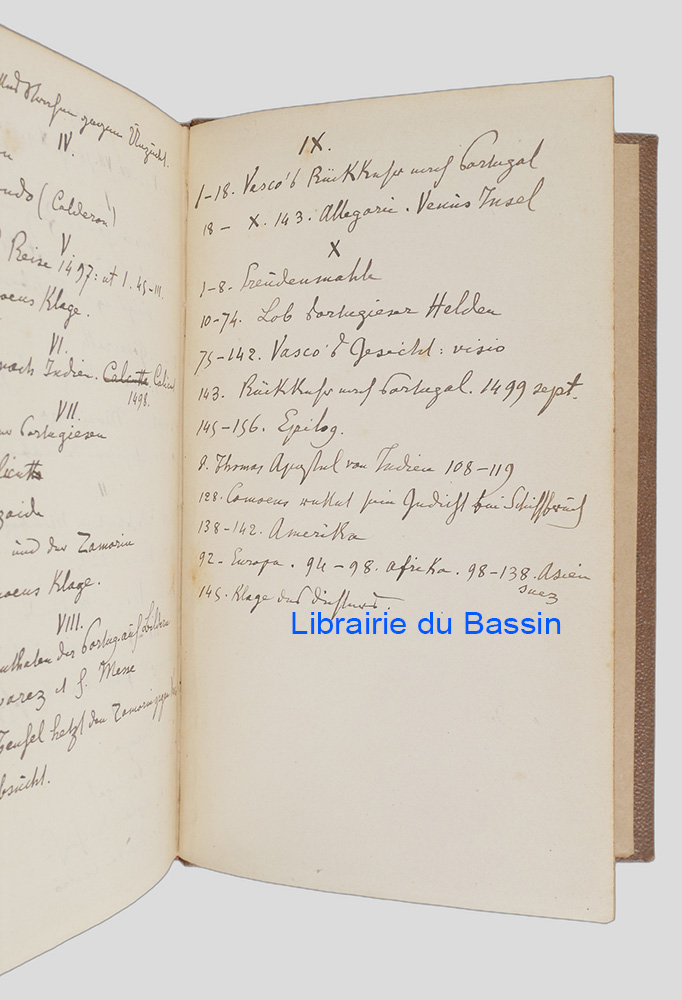 und gegen Unzucht.
IV.
(Calderon)
V
Reise 1497: ut 1. 45–III.
Klage.
VI.
nach Indien. Calcutta.
1498.
VII.
Portugiesen
und der Zamorin
Klage.
VIII.
der Portug. auf Bildern
et s. Messe
Teufel hetzt den Zamorin gegen
IX.
1–18. Vasco's Rückkehr nach Portugal
18 – X. 143. Allegorie. Venus Insel
X
1–8. Freudenmahle
10–74. Lob Portugieser Helden
75–142. Vasco's Gesicht: visio
143. Rückkehr nach Portugal. 1499 sept.
145–156. Epilog.
S. Thomas Apostel von Indien 108–119
128. Camoens rettet sein Gedicht bei Schiffbruch
138–142. Amerika
92– Europa. 94–98. Afrika. 98–138. Asien
Suez
145. Klage des Dichters.
Librairie du Bassin